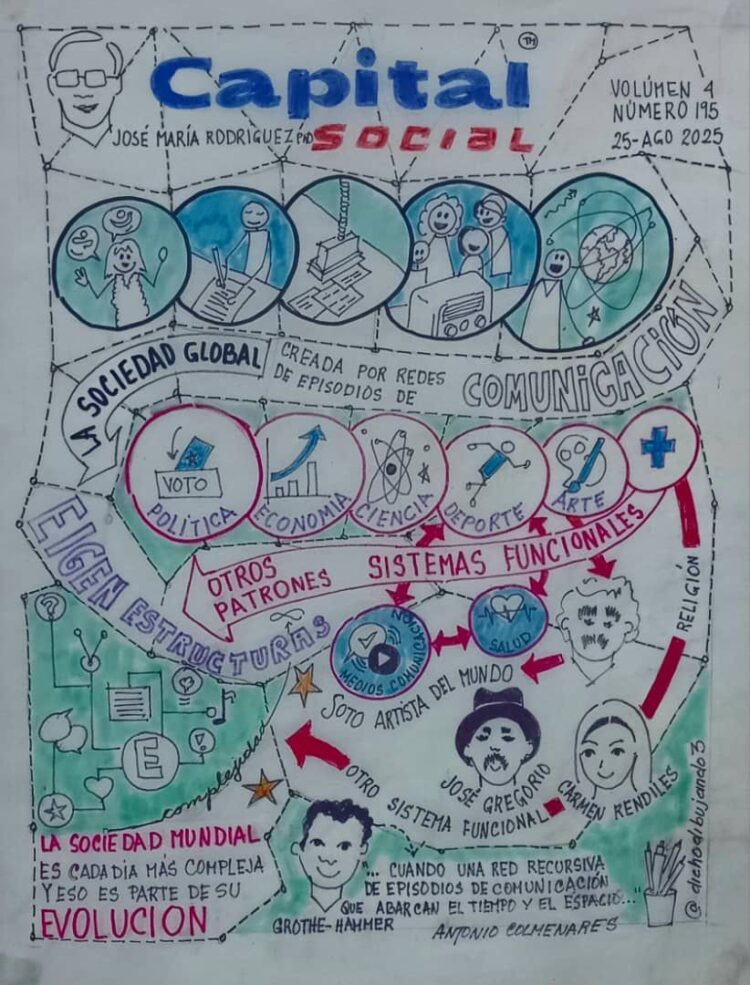 Capital
TM
SOCIAL
JOSÉ MARÍA RODRIGUEZ PhD
VOLÚMEN 4
NÚMERO 195
25-AGO 2025
LA SOCIEDAD GLOBAL
CREADA POR REDES
DE EPISODIOS DE
COMUNICACIÓN
VOTO
POLÍTICA
ECONOMÍA
CIENCIA
DEPORTE
ARTE
EIGEN ESTRUCTURAS
OTROS
PATRONES
SISTEMAS FUNCIONALES
RELIGIÓN
MEDIOS COMUNICACIÓN
SALUD
SOTO ARTISTA DEL MUNDO
JOSÉ GREGORIO
CARMEN RENDILES
OTRO SISTEMA FUNCIONAL
E
complejidad
LA SOCIEDAD MUNDIAL
ES CADA DÍA MÁS COMPLEJA
Y ESO ES PARTE DE SU
EVOLUCION
GROTHE-HAMMER
"... CUANDO UNA RED RECURSIVA
DE EPISODIOS DE COMUNICACIÓN
QUE ABARCAN EL TIEMPO Y EL ESPACIO..."
ANTONIO COLMENARES
@dichoydibujando3